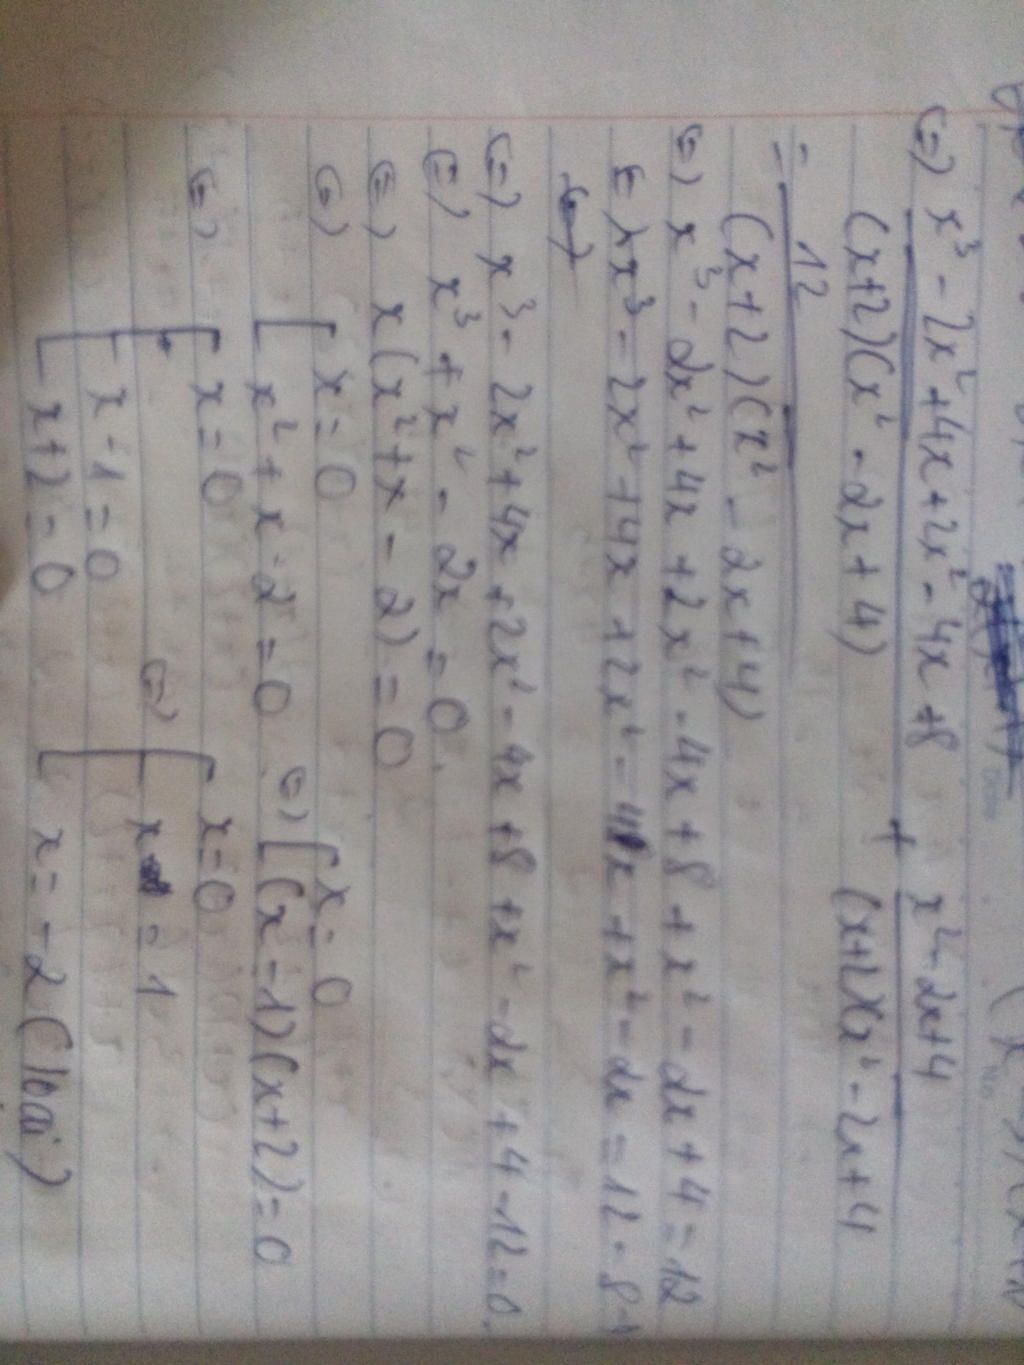 (=) x³ - 2x² + 4x + 2x² - 4x + 8 + x² - 2x + 4
(x+2)(x² - 2x + 4) (x+2)(x² - 2x + 4
= 12
(x+2)(x² - 2x + 4)
(=) x³ - 2x² + 4x + 2x² - 4x + 8 + x² - 2x + 4 = 12
(=) x³ - 2x² + 4x + 2x² - 4x + x² - 2x = 12 - 8 -
(=) x³ - 2x² + 4x + 2x² - 4x + 8 + x² - 2x + 4 - 12 = 0.
(=) x³ + x² - 2x = 0.
(=) x(x² + x - 2) = 0
(=) [ x = 0
x² + x - 2 = 0 (=) [ x = 0
(x - 1)(x + 2) = 0
(=) [ x = 0
x - 1 = 0
x + 2 = 0
(=) [ x = 0
x = 1
x = -2 (loại)